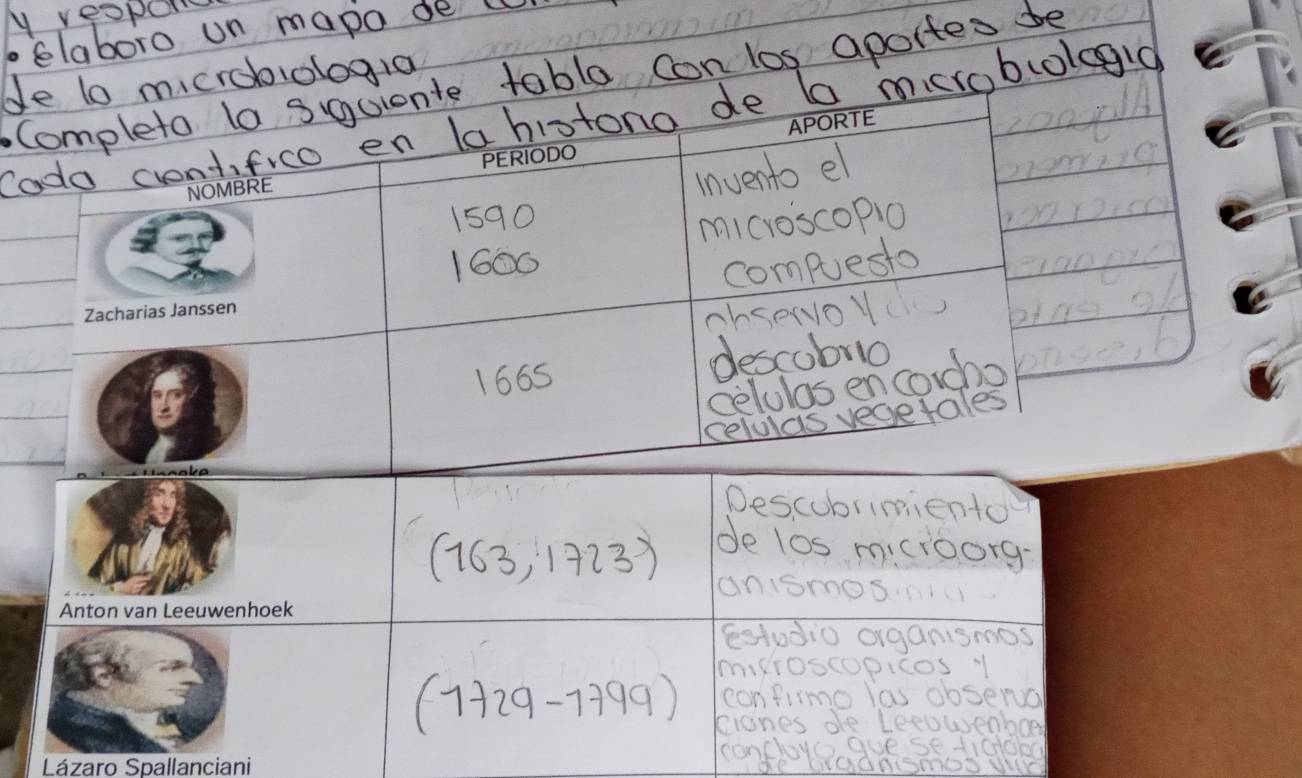 •elaboro un mapa de
de la microbiologia
•Completa la siguiente tabla con los aportes de
Cada cientifico en la historia de la microbiologia
NOMBRE PERIODO APORTE
Zacharias Janssen
1590
1600
invento el
microscopio
compuesto
1665
observo y
descubrio
células en corcho
celulas vegetales
Anton van Leeuwenhoek
(163, 1723)
Descubrimiento
de los microorg-
anismos
Lázaro Spallanciani
(1729-1799)
Estudio organismos
microscopicos y
confirmo las observa
ciones de Leeuwenhoe
concluyo que se